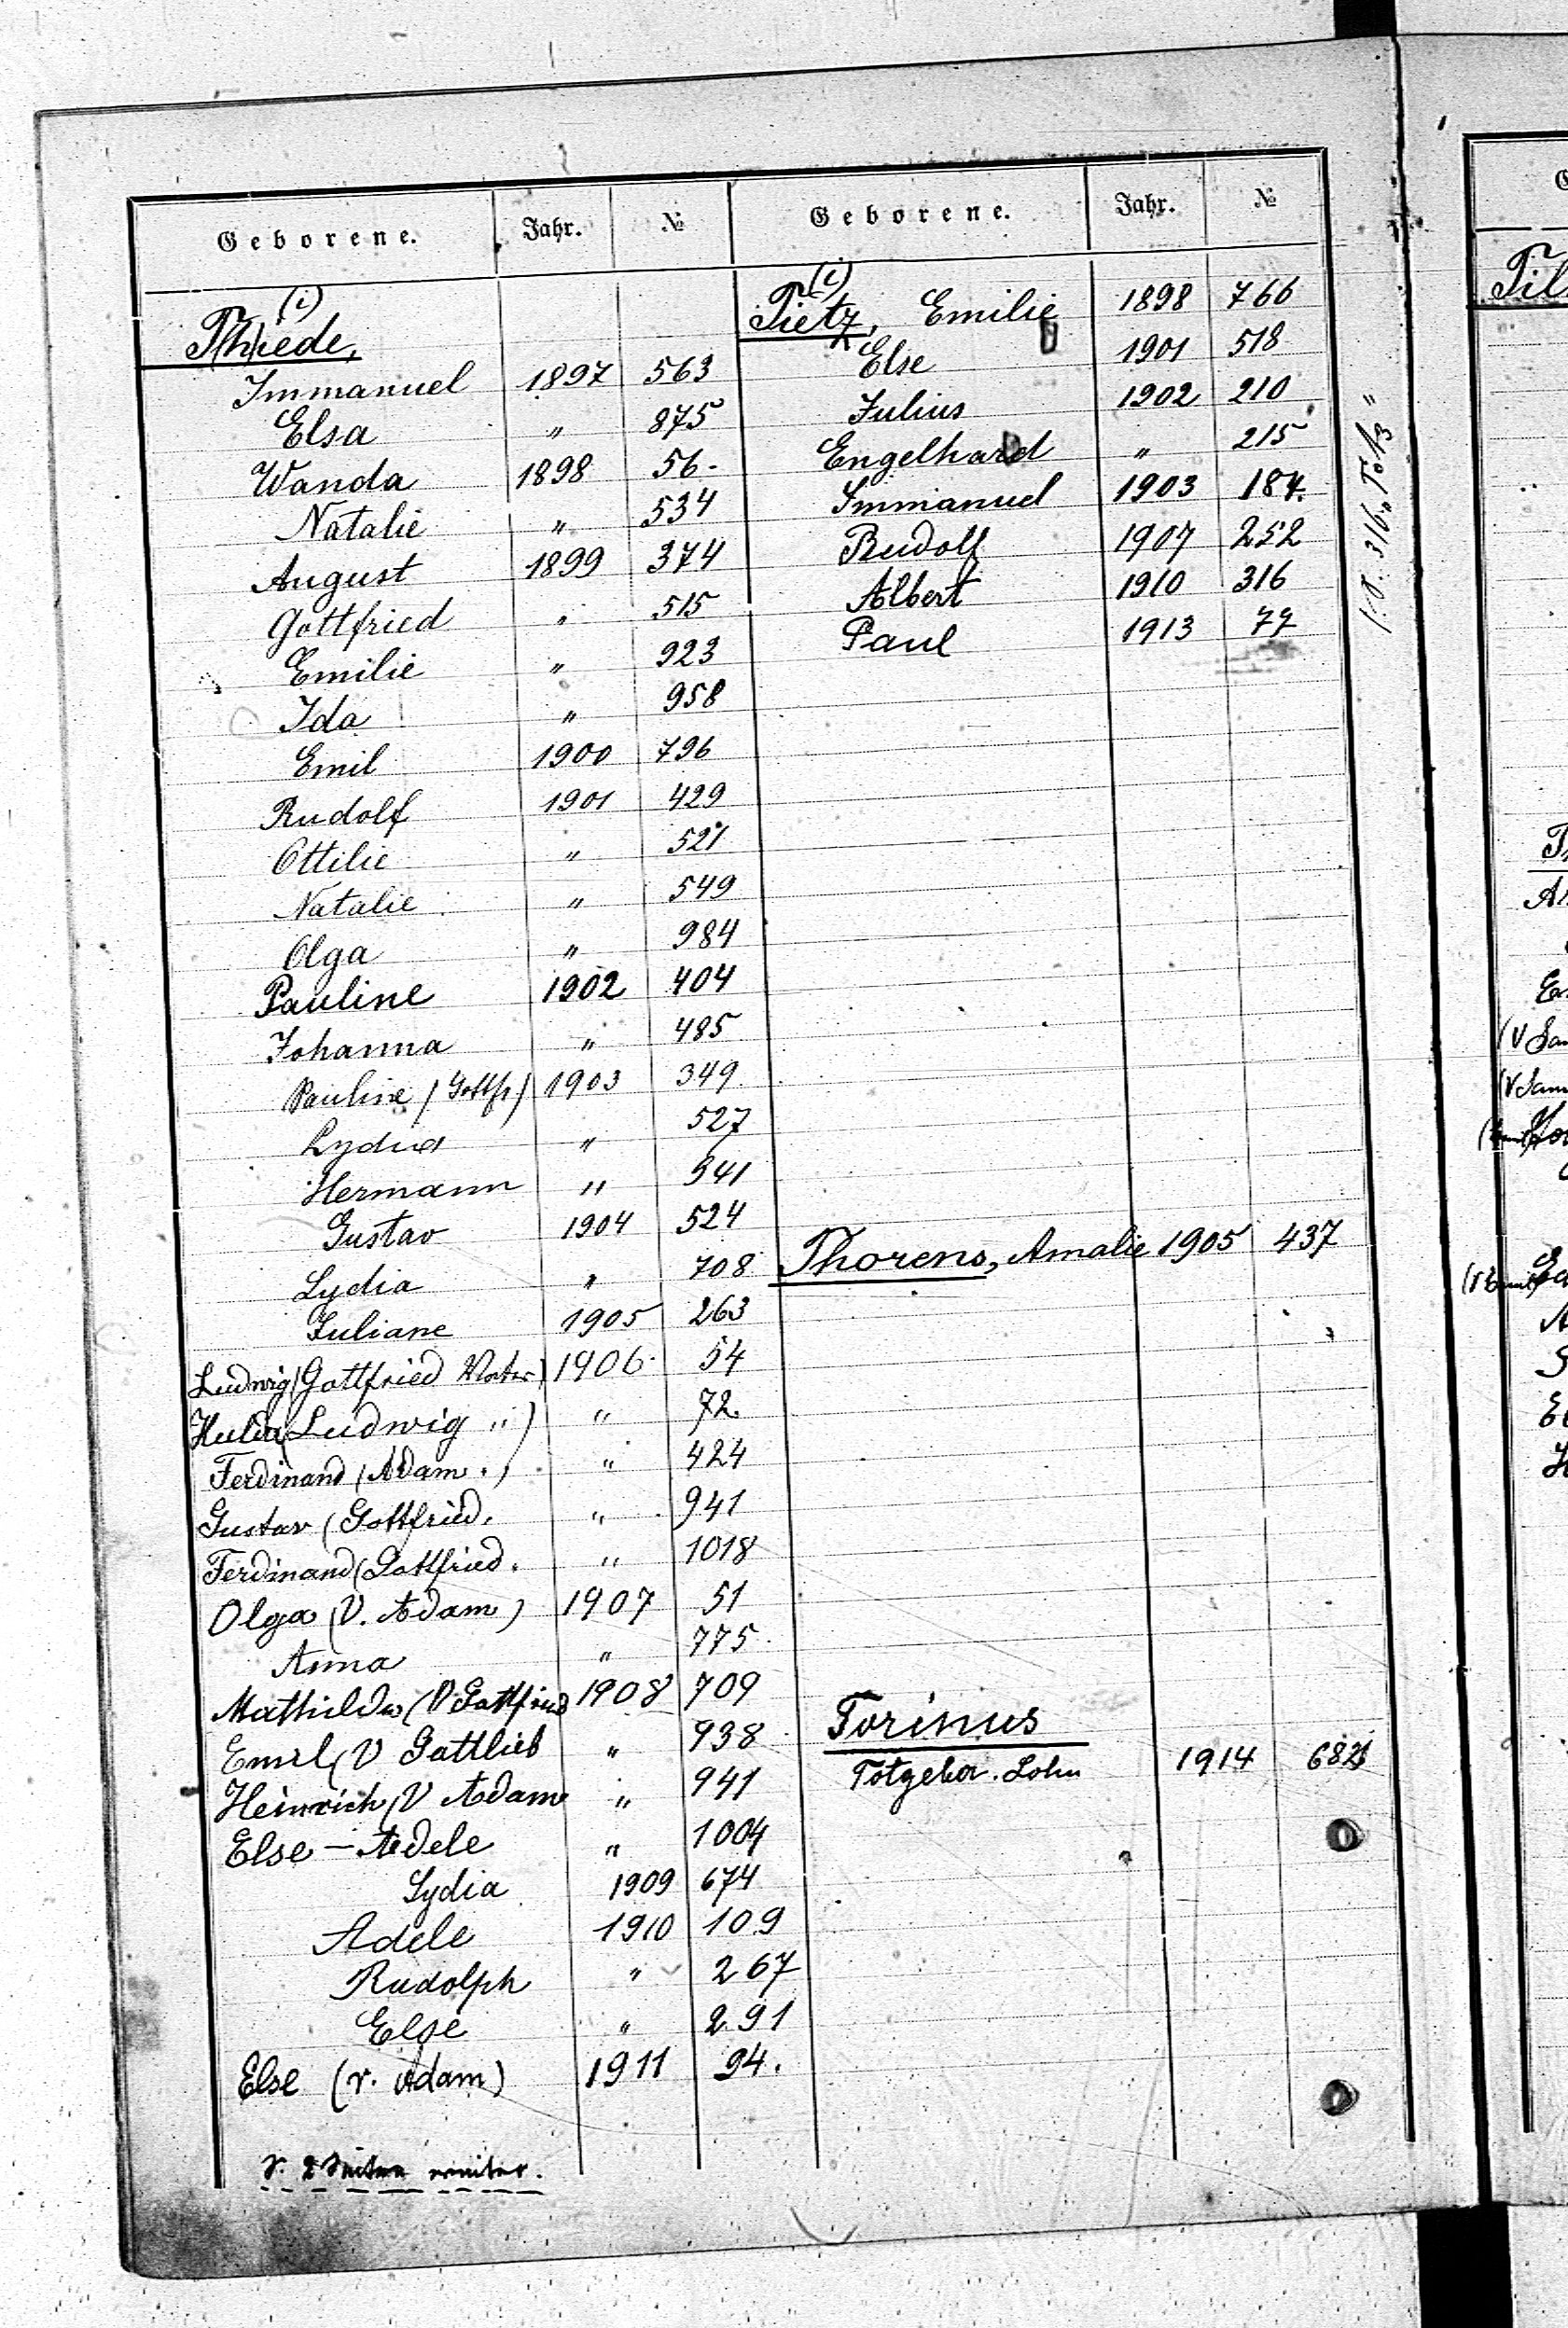 Geborene. Jahr. №
(i)
T(h)iede,
Immanuel 1897 563
Elsa " 875
Wanda 1898 56.
Natalie " 534
August 1899 374
Gottfried " 515
Emilie " 923
Ida " 958
Emil 1900 796
Rudolf 1901 429
Ottilie " 521
Natalie " 549
Olga " 984
Pauline 1902 404
Johanna " 485
Pauline (Gottfr) 1903 349
Lydia " 527
Hermann " 541
Gustav 1904 524
Lydia " 708
Juliane 1905 263
Ludwig (Gottfried Vater) 1906 54
Hulda (Ludwig ") " 72.
Ferdinand (Adam.) " 424
Gustav (Gottfried. " 941
Ferdinand (Gottfried. " 1018
Olga (V. Adam) 1907 51
Anna " 775
Mathilde (V Gottfried 1908 709
Emil (V Gottlieb " 938
Heinrich (V Adam " 941
Else – Adele " 1004
Lydia 1909 674
Adele 1910 109
Rudolph " 267
Else " 291
Else (v. Adam) 1911 94.
V. 2 Seiten weiter.
Geborene. Jahr. №
(i)
Tietz, Emilie 1898 766
Else 1901 518
Julius 1902 210
Engelhard " 215
Immanuel 1903 187.
Rudolf 1907 252
Albert 1910 316
Paul 1913 77
Thorens, Amalie 1905 437
Torinus
Totgebor. Sohn 1914 682
316
Til